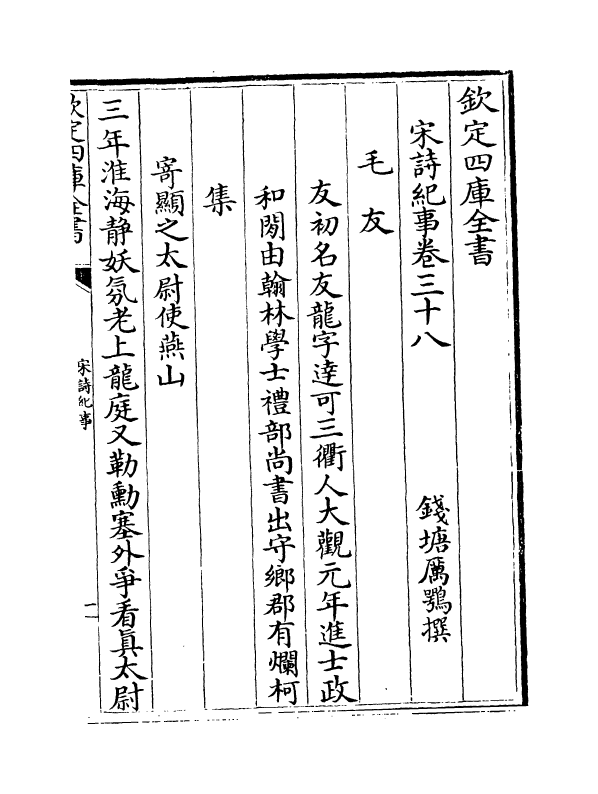 欽定四庫全書
宋詩紀事卷三十八
錢塘厲鶚撰
毛友
友初名友龍字逹可三衢人大觀元年進士政
和閒由翰林學士禮部尚書出守鄉郡有爛柯
集
寄顯之太尉使燕山
三年淮海静妖氛老上龍庭又勒勳塞外爭看眞太尉
欽定四庫全書
宋詩紀事
一